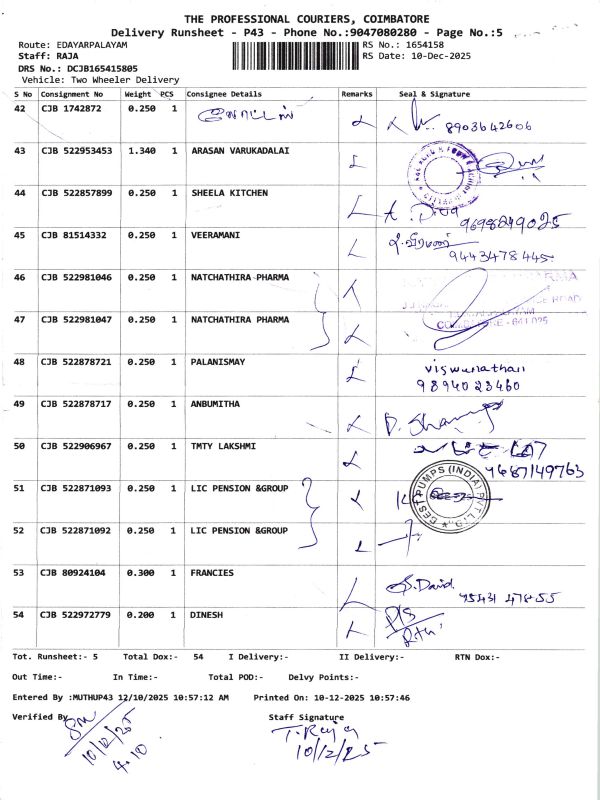 THE PROFESSIONAL COURIERS, COIMBATORE
Delivery Runsheet - P43 - Phone No.:9047080280 - Page No.:5
Route: EDAYARPALAYAM RS No.: 1654158
Staff: RAJA RS Date: 10-Dec-2025
DRS No.: DCJB165415805
Vehicle: Two Wheeler Delivery
S No Consignment No Weight PCS Consignee Details Remarks Seal & Signature
42 CJB 1742872 0.250 1
8903642606
43 CJB 522953453 1.340 1 ARASAN VARUKADALAI
44 CJB 522857899 0.250 1 SHEELA KITCHEN
9698249025
45 CJB 81514332 0.250 1 VEERAMANI
9443478445
46 CJB 522981046 0.250 1 NATCHATHIRA PHARMA
47 CJB 522981047 0.250 1 NATCHATHIRA PHARMA
COIMBATORE - 641 025
48 CJB 522878721 0.250 1 PALANISMAY viswanathan
9894023460
49 CJB 522878717 0.250 1 ANBUMITHA
50 CJB 522906967 0.250 1 TMTY LAKSHMI
9687149763
51 CJB 522871093 0.250 1 LIC PENSION &GROUP
PUMPS (INDIA) PVT LTD
52 CJB 522871092 0.250 1 LIC PENSION &GROUP
53 CJB 80924104 0.300 1 FRANCIES S. David
75431 47855
54 CJB 522972779 0.200 1 DINESH
Tot. Runsheet:- 5 Total Dox:- 54 I Delivery:- II Delivery:- RTN Dox:-
Out Time:- In Time:- Total POD:- Delvy Points:-
Entered By :MUTHUP43 12/10/2025 10:57:12 AM Printed On: 10-12-2025 10:57:46
Verified By Staff Signature
10/12/25 T. Raja
4.10 10/12/25